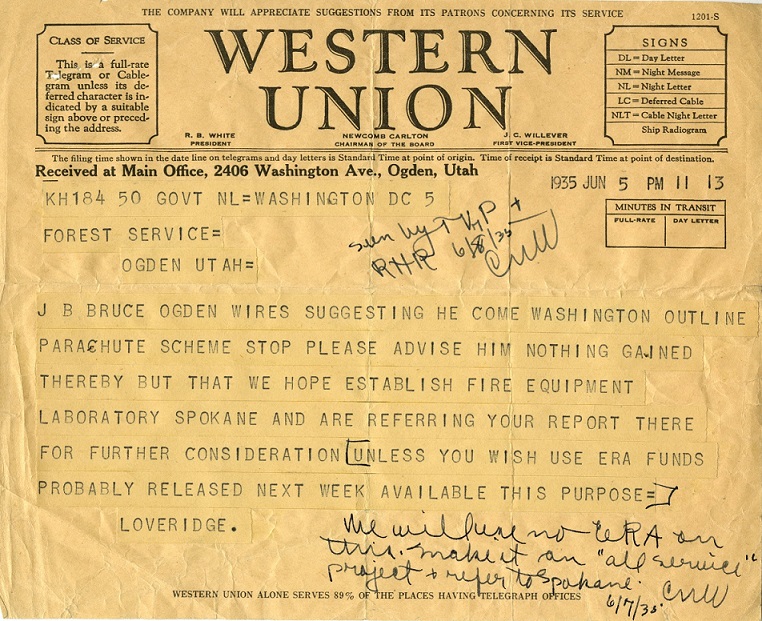 THE COMPANY WILL APPRECIATE SUGGESTIONS FROM ITS PATRONS CONCERNING ITS SERVICE
1201-S
CLASS OF SERVICE
This is a full-rate
Telegram or Cable-
gram unless its de-
ferred character is in-
dicated by a suitable
sign above or preced-
ing the address.
WESTERN
UNION
R. B. WHITE
PRESIDENT
NEWCOMB CARLTON
CHAIRMAN OF THE BOARD
J. C. WILLEVER
FIRST VICE-PRESIDENT
SIGNS
DL = Day Letter
NM = Night Message
NL = Night Letter
LC = Deferred Cable
NLT = Cable Night Letter
Ship Radiogram
The filing time shown in the date line on telegrams and day letters is Standard Time at point of origin. Time of receipt is Standard Time at point of destination.
Received at Main Office, 2406 Washington Ave., Ogden, Utah
1935 JUN 5 PM 11 13
MINUTES IN TRANSIT
FULL-RATE DAY LETTER
KH184 50 GOVT NL=WASHINGTON DC 5
FOREST SERVICE=
OGDEN UTAH=
seen by TVP +
RHR 6/8/35
CNW
J B BRUCE OGDEN WIRES SUGGESTING HE COME WASHINGTON OUTLINE
PARACHUTE SCHEME STOP PLEASE ADVISE HIM NOTHING GAINED
THEREBY BUT THAT WE HOPE ESTABLISH FIRE EQUIPMENT
LABORATORY SPOKANE AND ARE REFERRING YOUR REPORT THERE
FOR FURTHER CONSIDERATION [UNLESS YOU WISH USE ERA FUNDS
PROBABLY RELEASED NEXT WEEK AVAILABLE THIS PURPOSE=]
LOVERIDGE.
We will use no ERA on
this. make it an "all service"
project + refer to Spokane.
CNW
6/7/35
WESTERN UNION ALONE SERVES 89% OF THE PLACES HAVING TELEGRAPH OFFICES